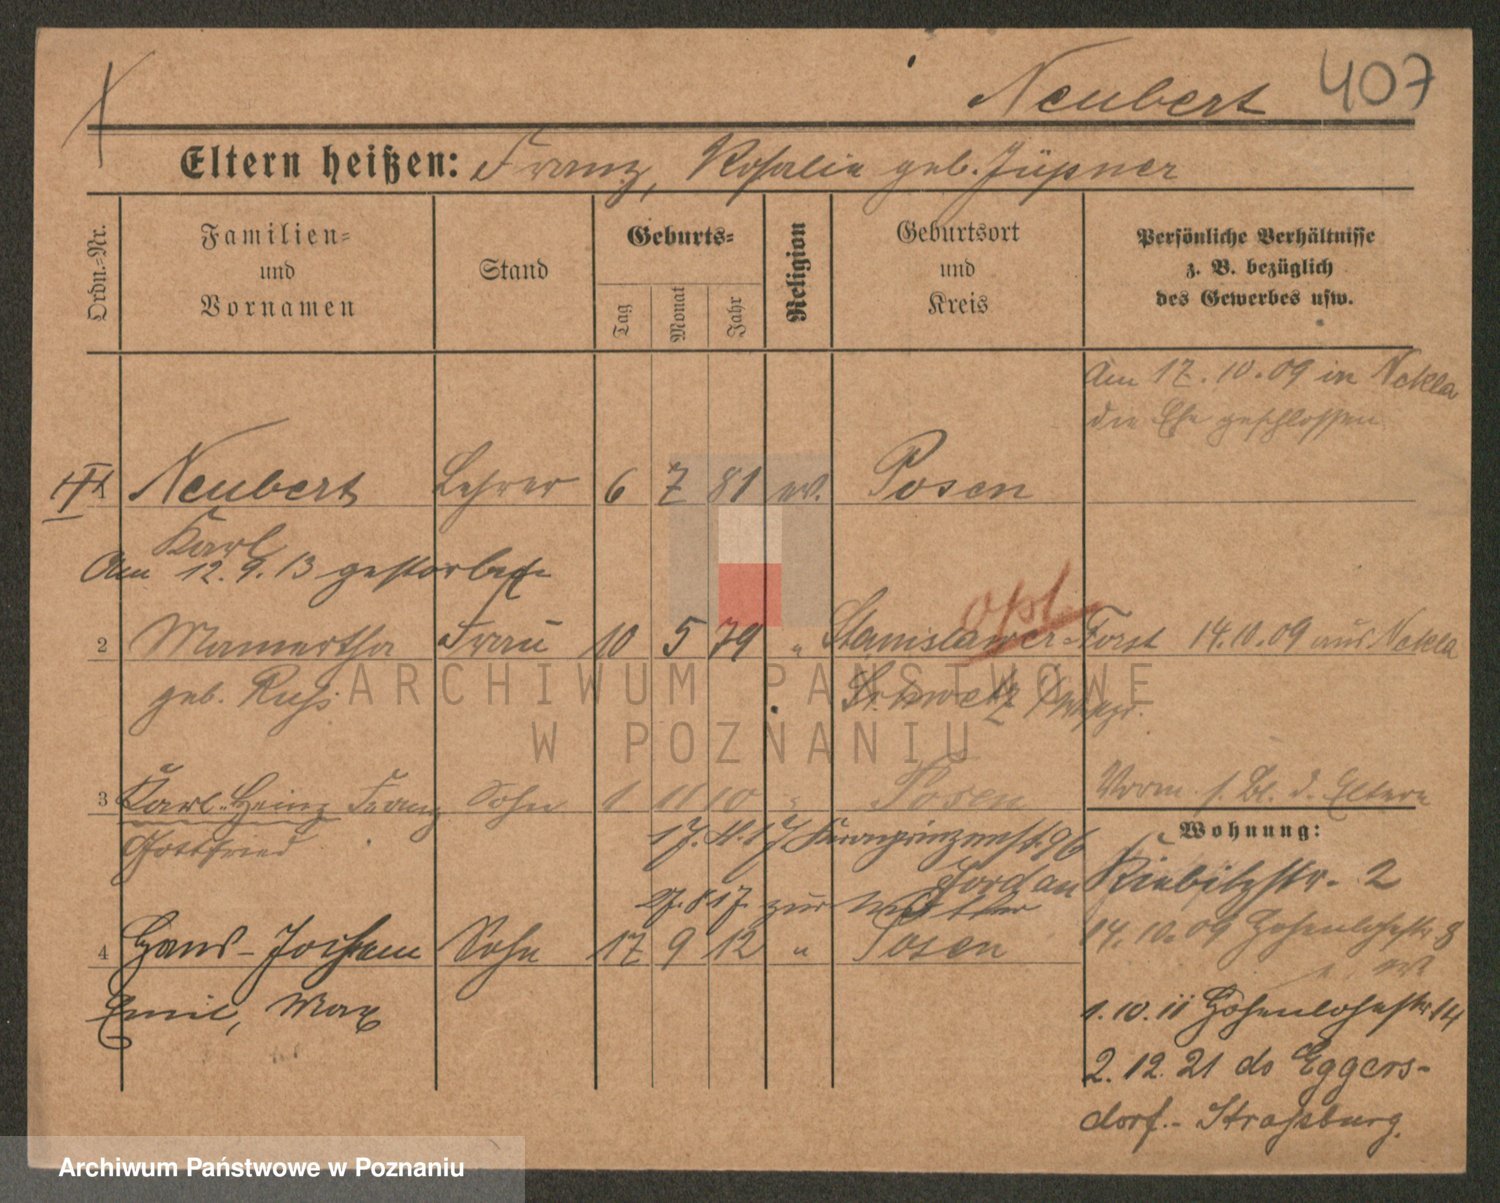 Neubert 407
Eltern heißen: Franz, Rosalie geb. Jüpner
Ordn.-Nr.
Familien-
und
Vornamen
Stand
Geburts-
Tag
Monat
Jahr
Religion
Geburtsort
und
Kreis
Persönliche Verhältnisse
z. B. bezüglich
des Gewerbes usw.
Am 17.10.09 in Nekla
die Ehe geschlossen
1 Neubert Lehrer 6 7 81 ev. Posen
Karl
Am 12.9.13 gestorben
2 Mamertha Frau 10 5 79 " Stanislawer-Forst 14.10.09 aus Nekla
geb. Ruhs
3 Karl-Heinz Franz Sohn 1 11 10 " Posen Vorm. s. Bl. d. Eltern
Gottfried
17. 4. 17 Kronprinzenst. 96
Jordan
27.8.17 zur Mutter
4 Hans-Jochem Sohn 17 9 12 " Posen
Emil, Max
Wohnung:
Kiebitzstr. 2
14.10.09 Hohenlohestr 8
1.10.11 Hohenlohestr 14
2.12.21 do Eggers-
dorf.- Straßburg.
ARCHIWUM PAŃSTWOWE
W POZNANIU
Archiwum Państwowe w Poznaniu